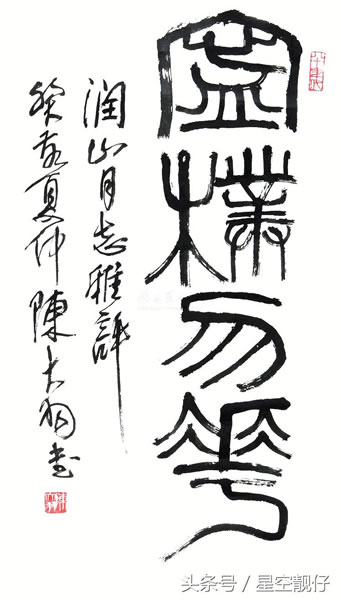 寧樸勿華
润山同志雅評
癸亥夏仲陳大羽書
头条号 / 星空靓仔